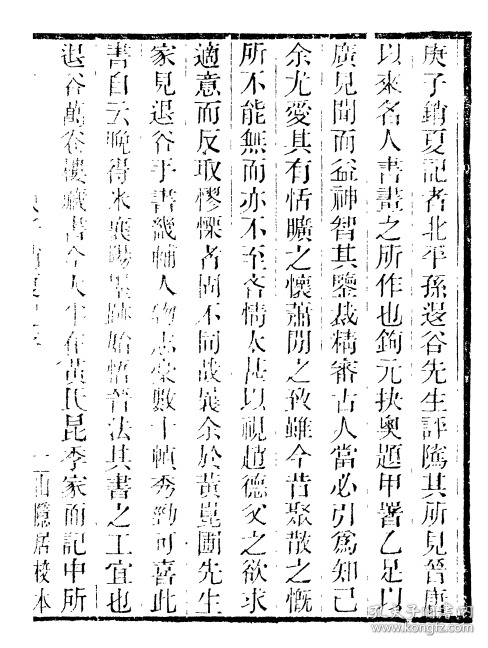 庚子銷夏記者北平孫退谷先生評隲其所見晉唐
以來名人書畫之所作也鉤元抉奧題甲署乙足以
廣見聞而益神智其鑒裁精審古人當必引爲知己
余尤愛其有恬曠之懷蕭閒之致雖今昔聚散之慨
所不能無而亦不至吝情太甚以視趙德父之欲求
適意而反取憀慄者固不同哉曩余於黃崑圃先生
家見退谷手書畿輔人物志稾數十幀秀勁可喜此
書自云晚得米襄陽墨跡始悟晉法其書之工宜也
退谷萬卷樓藏書今大半在黃氏昆季家而記中所
山隱居校本
孔夫子舊书网
www.kongfz.com